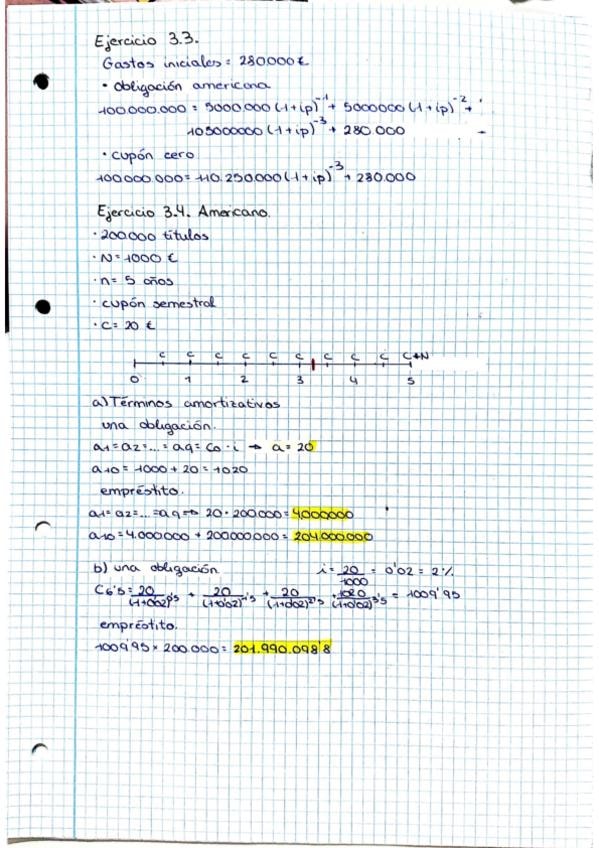 Ejercicio 3.3.
Gastos iniciales = 280000 €
• Obligación americana
100.000.000 = 5000.000 (1+ip)^-1 + 5000000 (1+ip)^-2 +
105000000 (1+ip)^-3 + 280.000
• cupón cero
100000.000 = 110.250000 (1+ip)^-3 + 280.000
Ejercicio 3.4. Americano.
· 200000 títulos
· N = 1000 €
· n = 5 años
· cupón semestral
· C = 20 €
c c c c c c c c c C+N
0 1 2 3 4 5
a) Términos amortizativos
una obligación.
a1 = a2 = ... = a9 = C0 · i → a = 20
a10 = 1000 + 20 = 1020
empréstito.
a1 = a2 = ... = a9 => 20 · 200000 = 4000000
a10 = 4.000000 + 200000000 = 204.000.000
b) una obligación i = 20/1000 = 0'02 = 2%
C6'5 = 20/(1+0'02)^0'5 + 20/(1+0'02)^1'5 + 20/(1+0'02)^2'5 + 1020/(1+0'02)^3'5 = 1009'95
empréstito.
1009'95 × 200.000 = 201.990.098'8